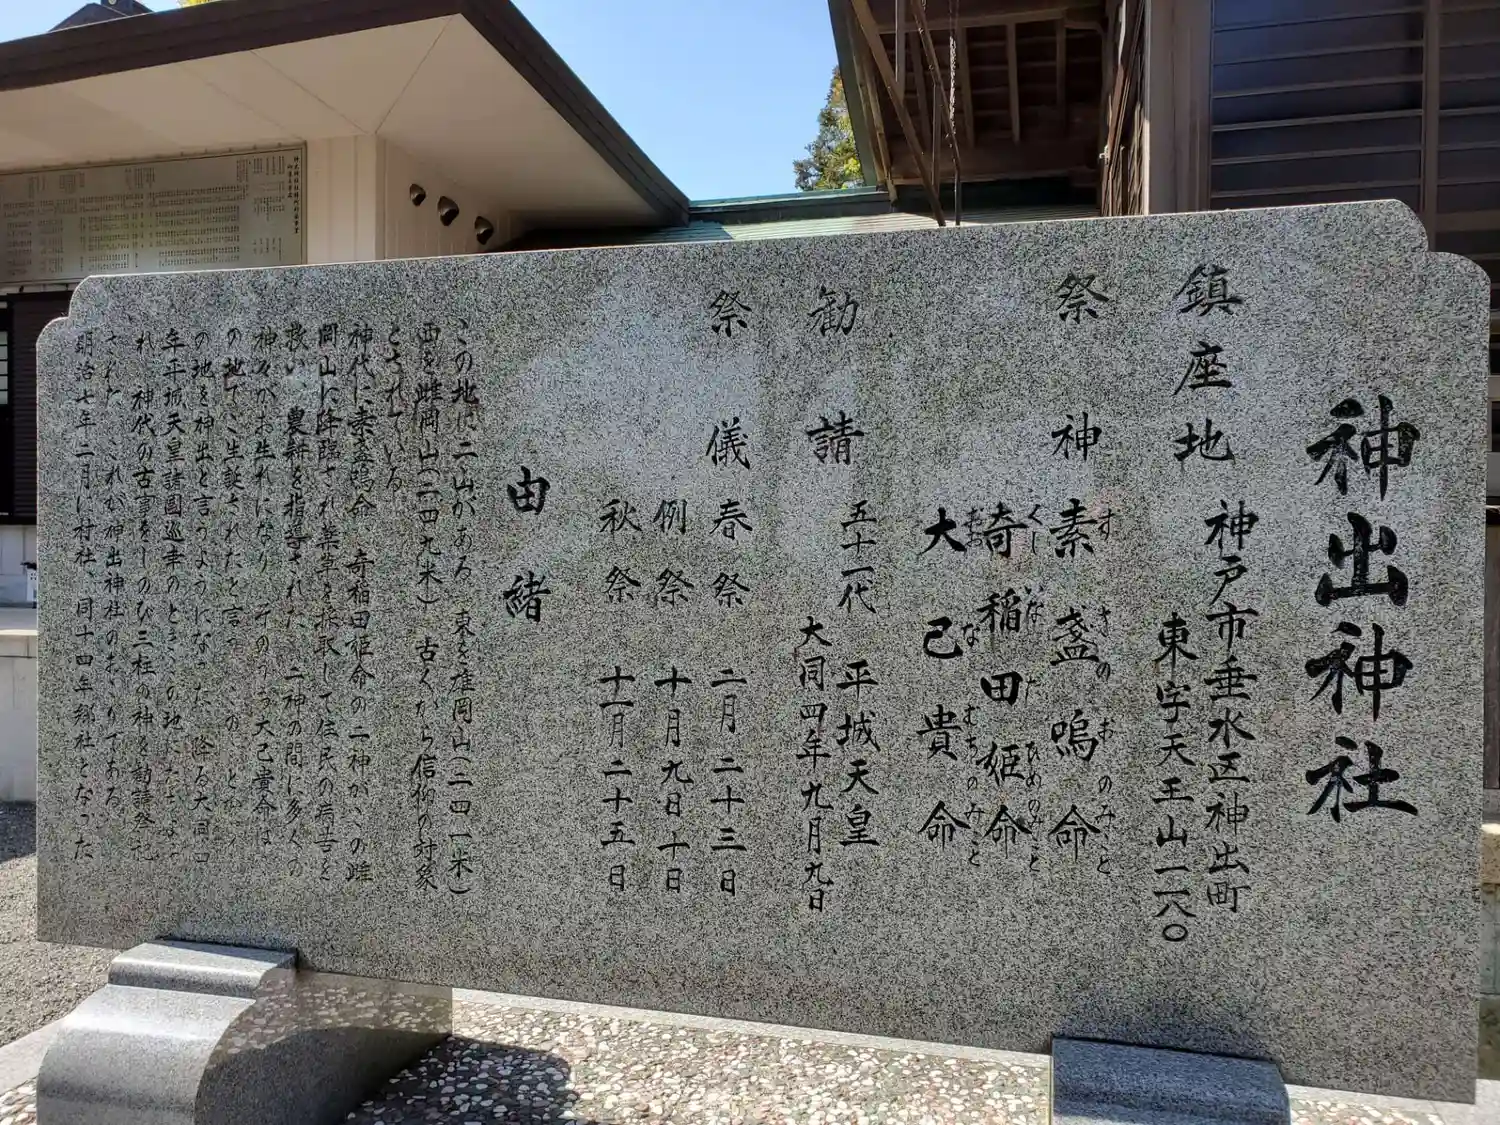 神出神社
鎮座地 神戸市垂水区神出町
東字天王山一一八〇
祭神 素盞嗚命
すさのおのみこと
奇稲田姫命
くしいなだひめのみこと
大己貴命
おおなむちのみこと
勧請 五十一代 平城天皇
大同四年九月九日
祭儀 春祭 二月二十三日
例祭 十月九日十日
秋祭 十一月二十五日
由緒
この地に二山がある 東を雄岡山(二四一米)
西を雌岡山(二四九米) 古くから信仰の対象
とされている
神代に素盞嗚命 奇稲田姫命の二神がこの雌
岡山に降臨され薬草を採取して住民の病苦を
救い 農耕を指導された 二神の間に多くの
神々がお生れになり そのうち大己貴命は
この地でご生誕されたと言う このことから
この地を神出と言うようになった 降る大同四
年平城天皇諸国巡幸のときこの地に
れ 神代の古事をしのび三柱の神を勧請祭祀
された これが神出神社のおこりである
明治七年二月に村社、同十四年郷社となった